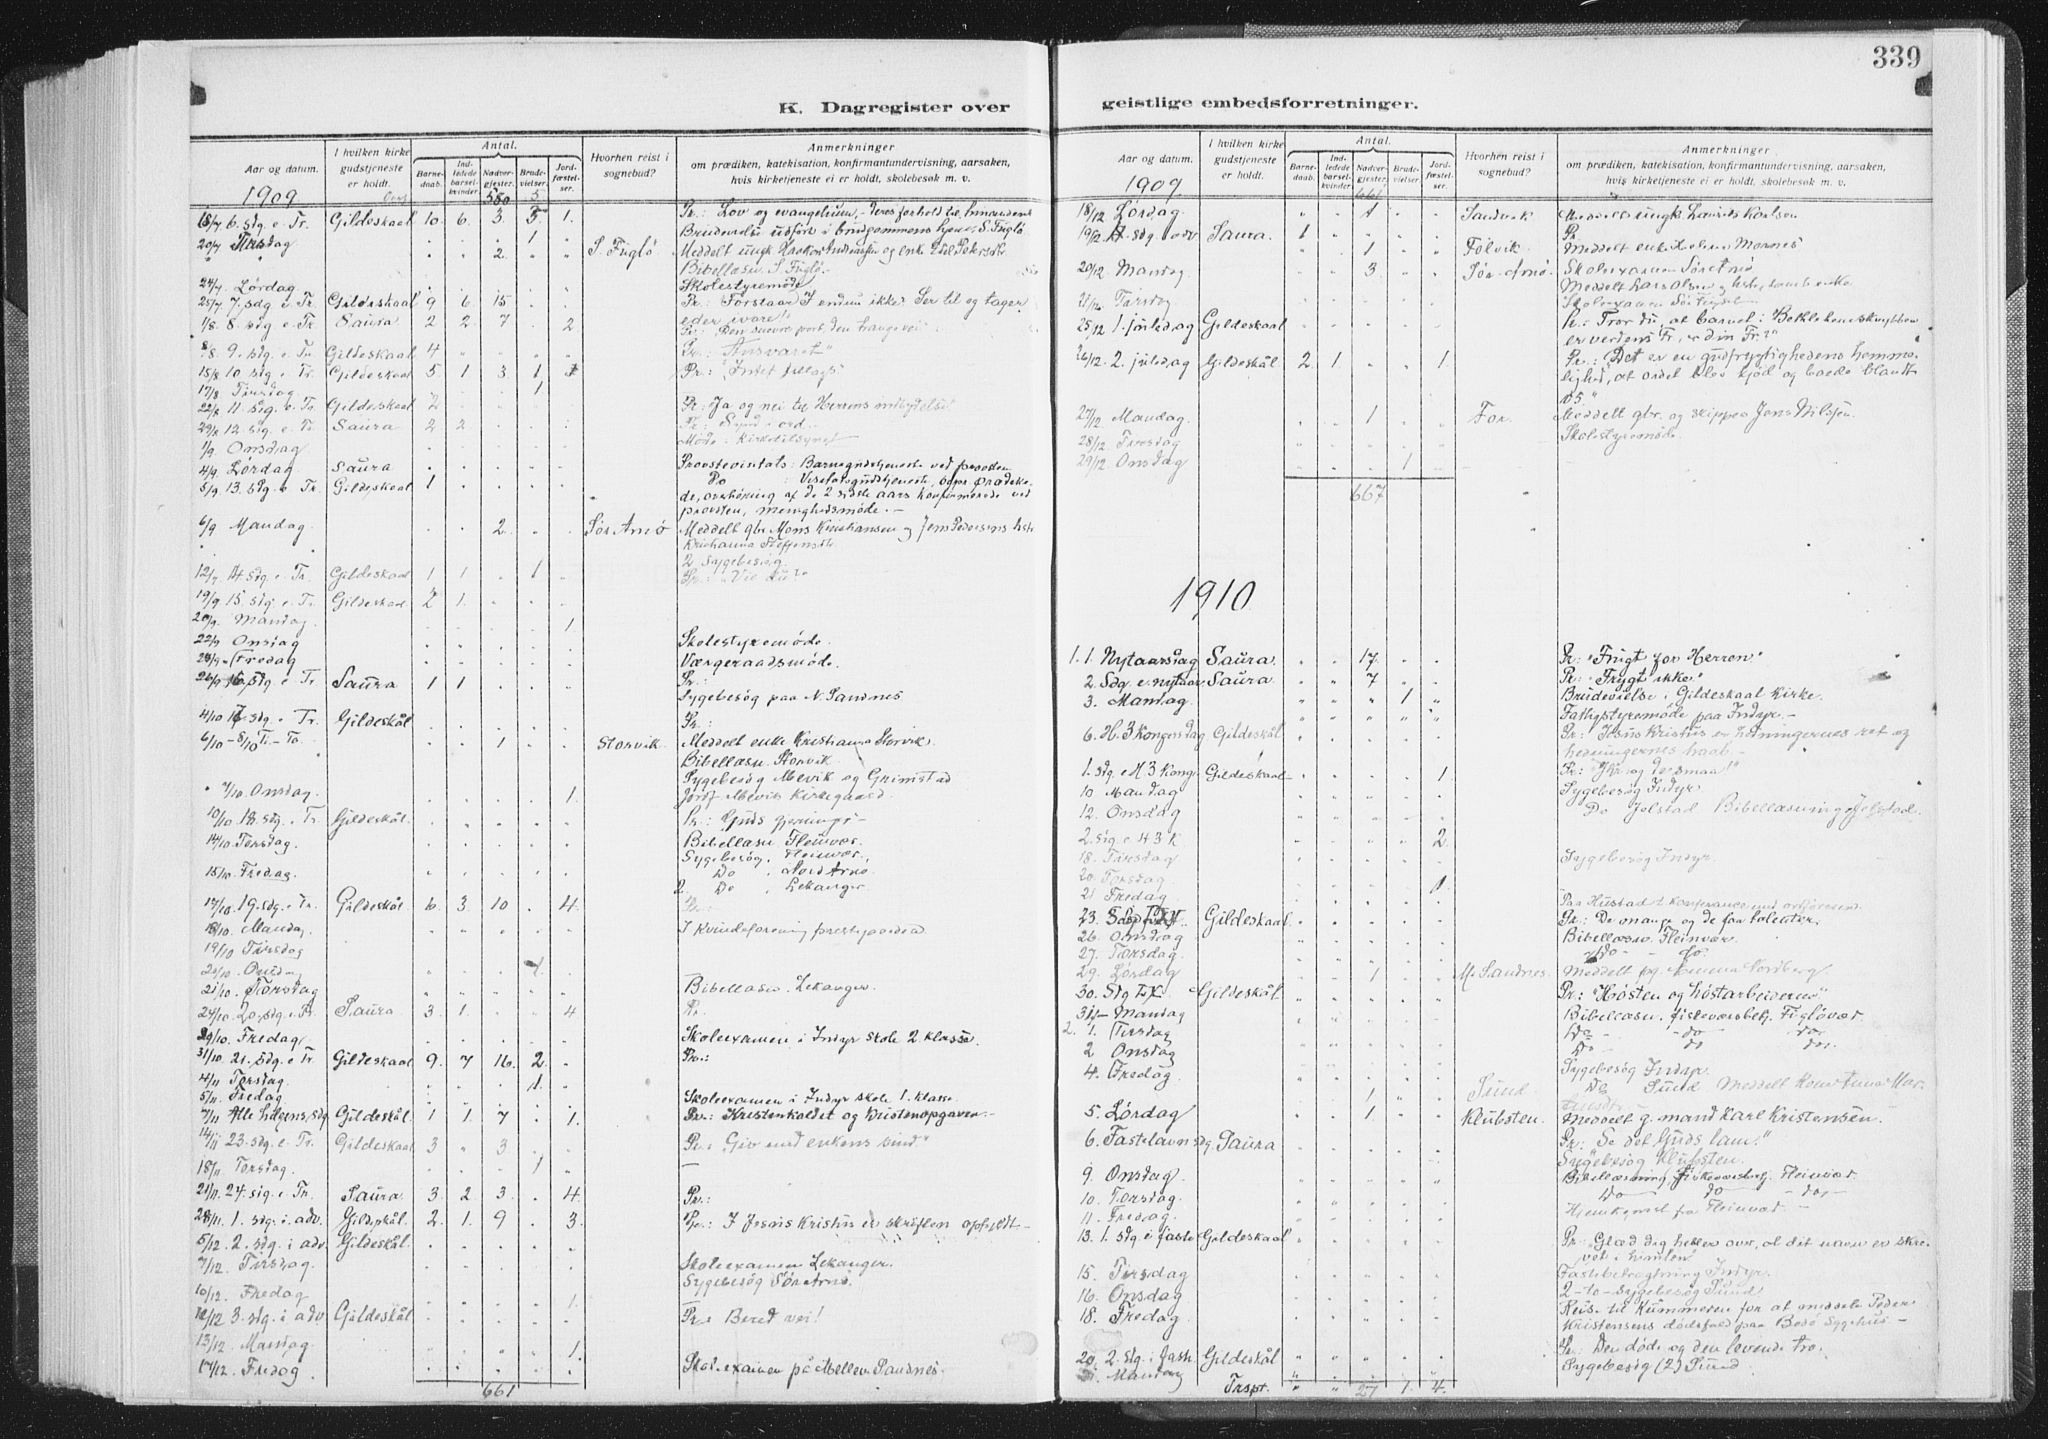 339
K. Dagregister over geistlige embedsforretninger.
Aar og datum.
I hvilken kirke gudstjeneste er holdt.
Antal.
Barnedaab.
Indledede barselkvinder.
Nadvergjester.
Brudevielser.
Jordfæstelser.
Hvorhen reist i sognebud?
Anmerkninger
om prædiken, katekisation, konfirmantundervisning, aarsaken,
hvis kirketjeneste ei er holdt, skolebesøk m. v.
1909 Overf. 580 5
18/7 6. sdg e. Tr. Gildeskaal 10 6 3 3 1. Pr.: Lov og evangelium,
20/7 Tirsdag 1 Brudevielse udført i brudgommens hjem, S. Fuglø
2. S. Fuglø Meddelt
Bibellæsn. S. Fuglø.
24/7. Lørdag Skolestyremøde
25/7 7. sdg e. Tr. Gildeskaal 9 6 15 Pr.: Forstaar I endnu ikke? Ser til og tager
1/8. 8. sdg e. Tr Saura 2 2. 7 2 eder ivare!
8/8. 9. sdg e. Tr. Gildeskaal 4 Pr.: "Ansvaret"
15/8 10 sdg e. Tr. Gildeskaal 5 1 3 1 1 Pr.:
17/8 Tirsdag 1
22/8 11. sdg. e. Tr. Gildeskaal 2 Pr.: Ja og nei til Herrens indbydelse!
29/8 12. sdg e. Tr. Saura 2 2
1/9 Onsdag Møde i Kirketilsynet
4/9 Lørdag Saura Provstevisitats: Barnegudstjeneste ved provsten
5/9 13. sdg. e Tr. Gildeskaal 1 Do : Visitatsgudstjeneste,
de, overhøring af de 2 sidste aars konfirmerede ved
provsten, menighedsmøde. -
6/9 Mandag 2. Sør Arnø Meddelt gbr Mons Kristiansen og Jens Pedersens hstr
2 Sygebesøg.
12/9 14 sdg. e. Tr. Gildeskaal 1 1 1 Pr.: "Vil du?"
19/9 15. sdg e. Tr. Gildeskaal 2 1.
20/9. Mandag 1
22/9 Onsdag Skolestyremøde.
24/9 Fredag Værgeraadsmøde.
26/9 16. sdg. e. Tr Saura 1 1 Pr.:
Sygebesøg paa N. Sandnes
4/10 17 sdg. e Tr. Gildeskål Pr.:
6/10 - 8/10 1 Storvik Meddelt enke Kristianna Storvik.
Bibellæsn. Storvik.
Sygebesøg Mevik og Grimstad
7/10. Onsdag. 1. Jordf. Mevik Kirkegaard.
10/10. 18. sdg. e Tr Gildeskål. Pr.: Guds gjerning
14/10 Torsdag. Bibellæsn Fleinvær.
Sygebesøg, Fleinvær,
15/10. Fredag. Do , Nord Arnø
2. Do , Lekanger.
17/10. 19. sdg. e. Tr. Gildeskål 6 3. 10 4. Pr.:
18/10. Mandag
19/10 Tirsdag
20/10. Onsdag 1
21/10. Torsdag Bibellæsn. Lekanger.
24/10. 20. sdg. e. Tr. Saura 3. 1. 4 Pr.
29/10. Fredag Skoleexamen i Indyr skole 2. klasse.
31/10. 21. sdg. e Tr Gildeskaal 9 7 16. 2 Pr.:
4/11 Torsdag. 1.
5/11. Fredag Skoleexamen i Indyr skole 1. klasse.
7/11 Alle helgens sdg Gildeskål. 1 1 7 1. Pr.: Kristenkaldet og kristenopgaven -
14/11 23. sdg. e. Tr. Gildeskaal 3 3 Pr.: Giv med enkens sind"
18/11 Torsdag. 1
21/11. 24. sdg. e. Tr. Saura. 3. 2 3. 4 Pr.:
28/11. 1. sdg. i. adv. Gildeskål. 2. 1. 9 3. Pr.: I Jesus Kristus er skriften opfyldt -
5/12. 2. sdg. i adv. Gildeskål.
7/12. Tirsdag. Skoleexamen Lekanger.
Sygebesøg Sør Arnø.
10/12. Fredag 1.
12/12 3. sdg. i adv. Gildeskål Pr.: Bered vei!
13/12. Mandag 1.
17/12. Fredag Skoleexamen på Mellem Sandnes.
661
Aar og datum.
I hvilken kirke gudstjeneste er holdt.
Antal.
Barnedaab.
Indledede barselkvinder.
Nadvergjester.
Brudevielser.
Jordfæstelser.
Hvorhen reist i sognebud?
Anmerkninger
om prædiken, katekisation, konfirmantundervisning, aarsaken,
hvis kirketjeneste ei er holdt, skolebesøk m. v.
1909 661
18/12 Lørdag 1 Sandvik Meddelt ungk Laurits Karlsen
19/12. 4. sdg. i adv. Saura. 1 Pr
1 Følvik. Meddelt enke
20/12. Mandag 3. Sør-Arnø. Skoleexamen Sør Arnø
Meddelt Lars Olsen og hstr, samt enke
21/12 Tirsdag Skoleexamen
25/12 1. juledag Gildeskaal Pr.: Tror du, at barnet i Betlehemskrybben
er verdens Fr., er din Fr?"
26/12. 2. juledag Gildeskål 2. 1 1. Pr.: "Det er en gudfrygtighedens hemme-
lighed, at ordet blev kjød og boede blandt
os."
27/12. Mandag. 1 For. Meddelt gbr. og skipper Jens Nilsen.
28/12. Tirsdag Skolestyremøde.
29/12. Onsdag 1
667
1910
1. 1. Nytaarsdag Saura. 17. Pr: "Frugt for Herren"
2. Sdg. e. nytaar Saura. 7 Pr: "Frygt ikke"
3. Mandag. 1 Brudevielse i Gildeskaal kirke.
Fattigstyremøde paa Indyr. -
6. H. 3 kongersdag Gildeskål Pr.: Jesus Kristus er hedningernes ret og
hedningernes haab -
1. sdg. e H 3 Kong. Gildeskaal 1
10 Mandag Sygebesøg Indyr
12. Onsdag Do Jelstad Bibellæsning Jelstad.
2. sdg. e H 3 K 2.
18. Tirsdag Sygebesøg Indyr.
20. Torsdag. 1.
21 Fredag Paa Hustad t. konferance med ordføreren.
23. Gildeskaal Pr.: De mange og de faa talenter.
26. Onsdag Bibellæsn. Fleinvær.
27. Torsdag. Do - do.
29. Lørdag 1 M. Sandnes. Meddelt pg. Emma Nordberg
30. Sdg Gildeskål Pr.: "Høsten og høstarbeiderne"
31/1 - Mandag Bibellæsn. fiskeværsbetj. Fugløvær.
2. 1. Tirsdag Do - do - do.
2 Onsdag Do do do.
4. Fredag. Sygebesøg Indyr.
1 Sund Do Sund Meddelt
5. Lørdag 1 Klubsten. Meddelt g. mand Karl Kristensen.
6. Fastelavnsdg. Saura Pr: Se det Guds lam!"
Sygebesøg Klubsten.
9. Onsdag Bibellæsning, Fiskeværsbetj. Fleinvær.
10. Torsdag. Do do - do,-
11. Fredag. Hjemkomst fra Fleinvær. -
13. 1. sdg. i faste Gildeskaal Pr.: Glæd dig heller over, at dit navn er skre-
vet i himlen"
15. Tirsdag Fastebetragtning Indyr.
16. Onsdag 2 - to - Sygebesøg Sund
18. Fredag Reise til Kummeren for at meddele Peder
Kristensens dødsfald paa Bodø Sygehus -
20. 2. sdg. i fast. Gildeskål Pr.: Den døde og den levende tro.
21. Mandag Sygebesøg (2) Sund.
Trspt. 27 1. 4.